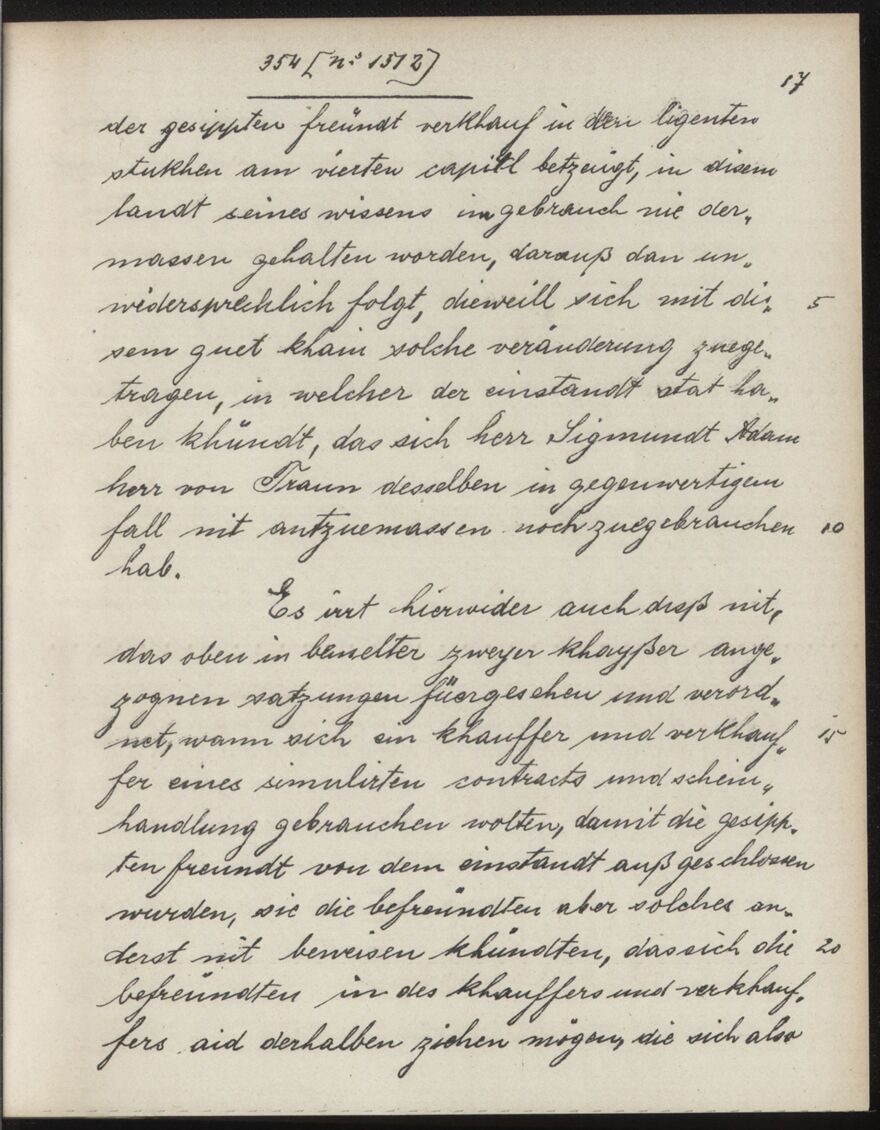 354 [nº 1512]
17
der gesippten freündt verkhauf in den ligenten
stukhen am vierten capitl betzeugt, in disem
landt seines wissens im gebrauch nie der„
massen gehalten worden, darauß dan un„
widersprechlich folgt, dieweill sich mit di„ 5
sem guet khain solche veränderung zuege„
tragen, in welcher der einstandt stat ha„
ben khündt, das sich herr Sigmundt Adam
herr von Traun desselben in gegenwertigem
fall nit antzuemassen noch zuegebrauchen 10
hab.
Es irrt hierwider auch diß nit,
das oben in bemelter zweyer khayßer ange„
zognen satzungen füergesehen und verord„
net, wann sich ein khauffer und verkhauf„ 15
fer eines simulirten contracts und schein„
handlung gebrauchen wolten, damit die gesipp„
ten freundt von dem einstandt außgeschlossen
wurden, sie die befreündten aber solches an„
derst nit beweisen khündten, das sich die 20
befreündten in des khauffers und verkhauf„
fers aid derhalben ziehen mögen, die sich also